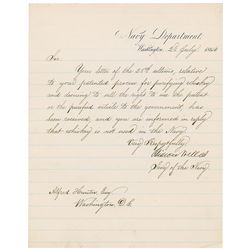 Navy Department,
Washington, 2d July 1864
Sir,
Your letter of the 28th ultimo, relative
to your patented process for purifying whiskey
and desiring to sell the right to use the patent
or the purified article to the government, has
been received, and you are informed in reply
that whiskey is not used in the Navy.
Very Respectfully,
Gideon Welles
Secy of the Navy
Alfred Hunter, Esq
Washington, D.C.